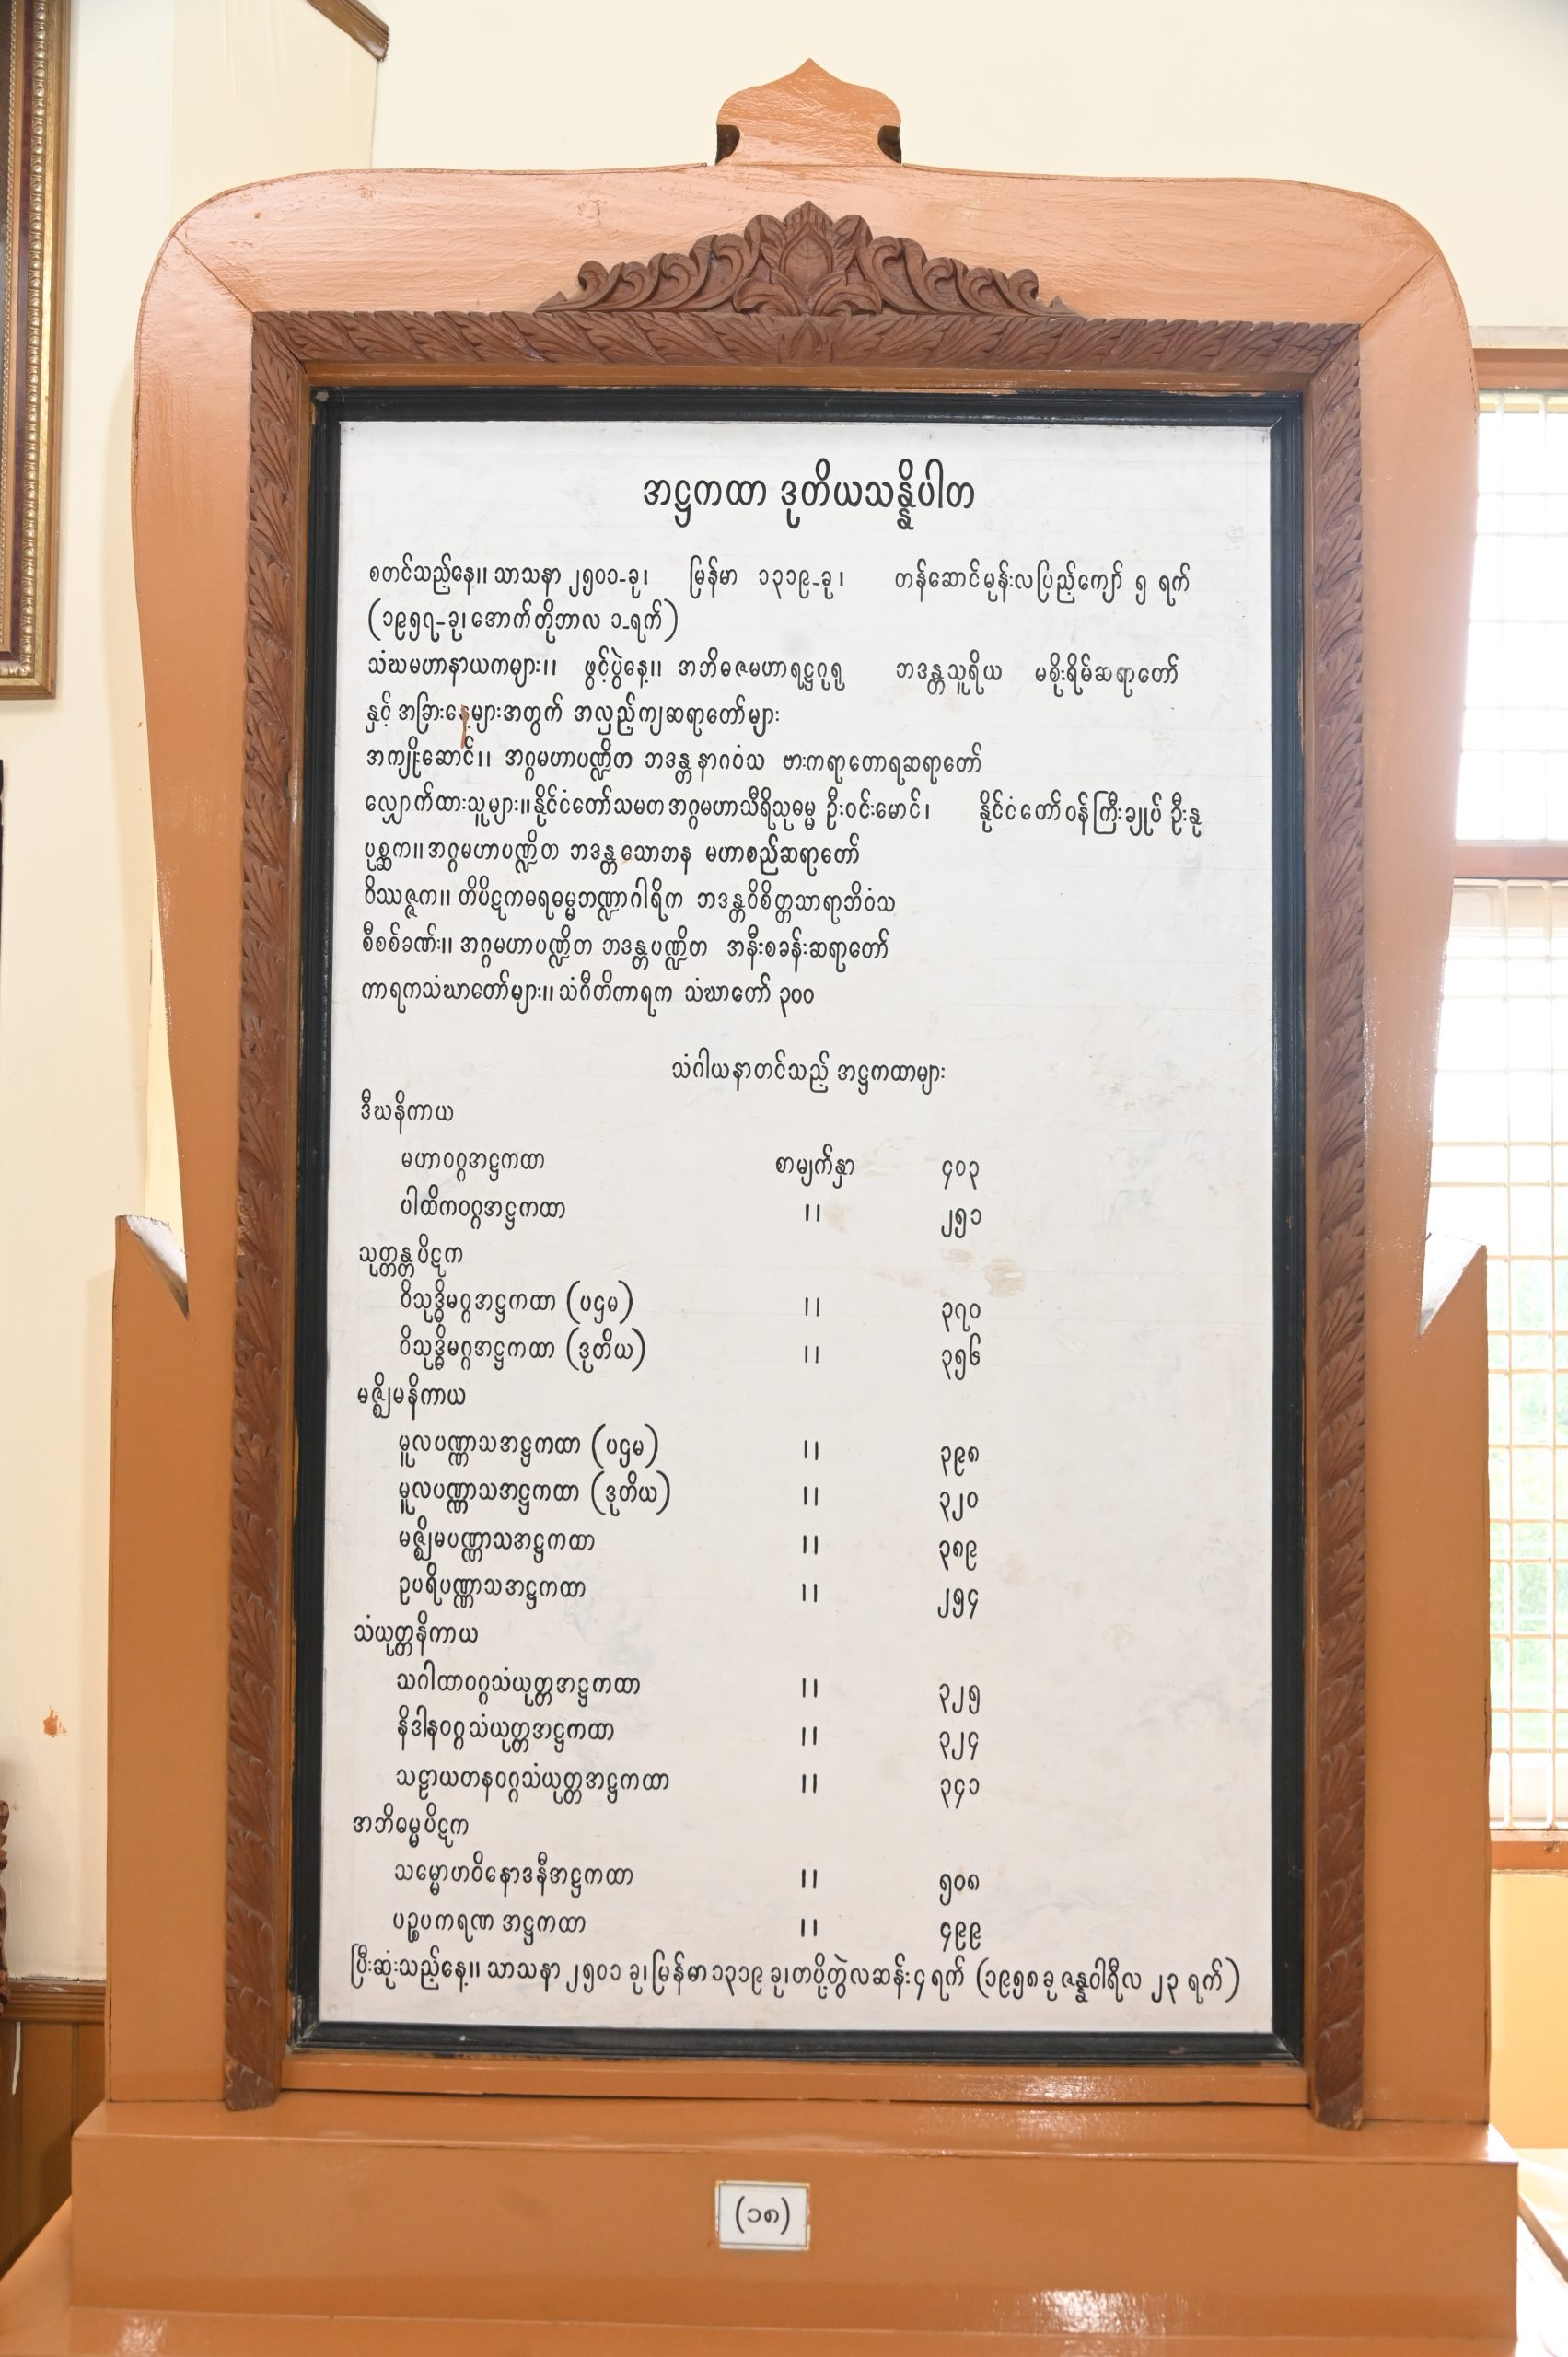 အဋ္ဌကထာ ဒုတိယသန္နိပါတ
စတင်သည့်နေ့။ သာသနာ ၂၅၀၁-ခု၊ မြန်မာ ၁၃၁၉-ခု၊ တန်ဆောင်မုန်းလပြည့်ကျော် ၅ ရက်
(၁၉၅၇-ခု၊ အောက်တိုဘာလ ၁-ရက်)
သံဃမဟာနာယကများ။ ဖွင့်ပွဲနေ့။ အဘိဓဇမဟာရဋ္ဌဂုရု ဘဒန္တသူရိယ မစိုးရိမ်ဆရာတော်
နှင့် အခြားနေ့များအတွက် အလှည့်ကျဆရာတော်များ
အကျိုးဆောင်။ အဂ္ဂမဟာပဏ္ဍိတ ဘဒန္တ နာဂဝံသ ဗားကရာတောရဆရာတော်
လျှောက်ထားသူများ။ နိုင်ငံတော်သမတ အဂ္ဂမဟာသီရိသုဓမ္မ ဦးဝင်းမောင်၊ နိုင်ငံတော်ဝန်ကြီးချုပ် ဦးနု
ပုစ္ဆက။ အဂ္ဂမဟာပဏ္ဍိတ ဘဒန္တသောဘန မဟာစည်ဆရာတော်
ဝိဿဇ္ဇက။ တိပိဋကဓရဓမ္မဘဏ္ဍာဂါရိက ဘဒန္တဝိစိတ္တသာရာဘိဝံသ
စီစစ်ခဏ်း။ အဂ္ဂမဟာပဏ္ဍိတ ဘဒန္တပဏ္ဍိတ အနီးစခန်းဆရာတော်
ကာရကသံဃာတော်များ။ သံဂီတိကာရက သံဃာတော် ၃၀၀
သံဂါယနာတင်သည့် အဋ္ဌကထာများ
ဒီဃနိကာယ
မဟာဝဂ္ဂအဋ္ဌကထာ စာမျက်နှာ ၄၀၃
ပါထိကဝဂ္ဂအဋ္ဌကထာ ၊၊ ၂၅၁
သုတ္တန္တပိဋက
ဝိသုဒ္ဓိမဂ္ဂအဋ္ဌကထာ (ပဌမ) ၊၊ ၃၇၀
ဝိသုဒ္ဓိမဂ္ဂအဋ္ဌကထာ (ဒုတိယ) ၊၊ ၃၅၆
မဇ္ဈိမနိကာယ
မူလပဏ္ဏာသအဋ္ဌကထာ (ပဌမ) ၊၊ ၃၉၈
မူလပဏ္ဏာသအဋ္ဌကထာ (ဒုတိယ) ၊၊ ၃၂၀
မဇ္ဈိမပဏ္ဏာသအဋ္ဌကထာ ၊၊ ၃၈၉
ဥပရိပဏ္ဏာသအဋ္ဌကထာ ၊၊ ၂၅၄
သံယုတ္တနိကာယ
သဂါထာဝဂ္ဂသံယုတ္တအဋ္ဌကထာ ၊၊ ၃၂၅
နိဒါနဝဂ္ဂသံယုတ္တအဋ္ဌကထာ ၊၊ ၃၂၄
သဠာယတနဝဂ္ဂသံယုတ္တအဋ္ဌကထာ ၊၊ ၃၄၁
အဘိဓမ္မပိဋက
သမ္မောဟဝိနောဒနီအဋ္ဌကထာ ၊၊ ၅၀၈
ပဉ္စပကရဏ အဋ္ဌကထာ ၊၊ ၄၉၉
ပြီးဆုံးသည့်နေ့။ သာသနာ ၂၅၀၁ ခု၊ မြန်မာ ၁၃၁၉ ခု၊ တပို့တွဲလဆန်း ၄ ရက် (၁၉၅၈ ခု ဇန္နဝါရီလ ၂၃ ရက်)
(၁၈)